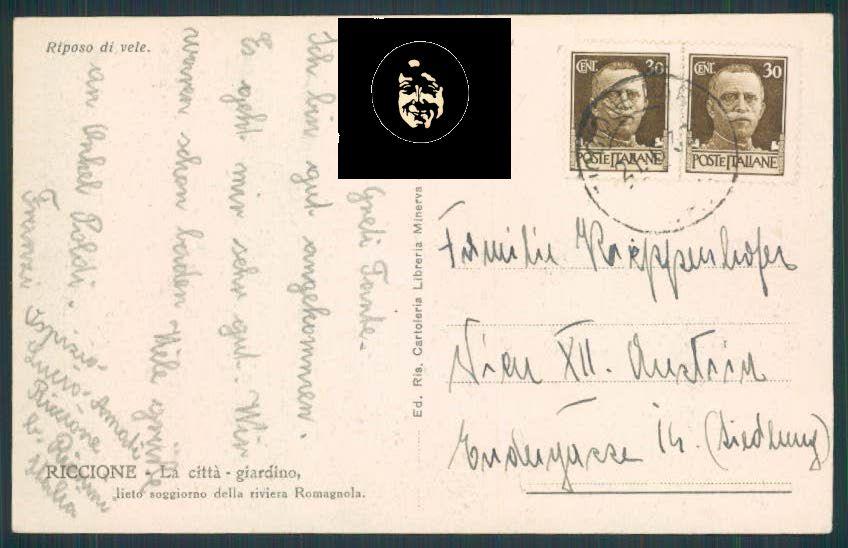 Riposo di vele.
Greti Tante.
Ich bin gut angekommen.
Es geht mir sehr gut. Wir
waren schon baden. Viele Grüße
an Onkel Poldi.
Franzi
Riccione
Italia
RICCIONE - La città - giardino,
lieto soggiorno della riviera Romagnola.
Ed. Ris. Cartoleria Libreria Minerva
CENT. 30
POSTE ITALIANE
CENT. 30
POSTE ITALIANE
Familie
Wien XII. Austria
14. (Siedlung)